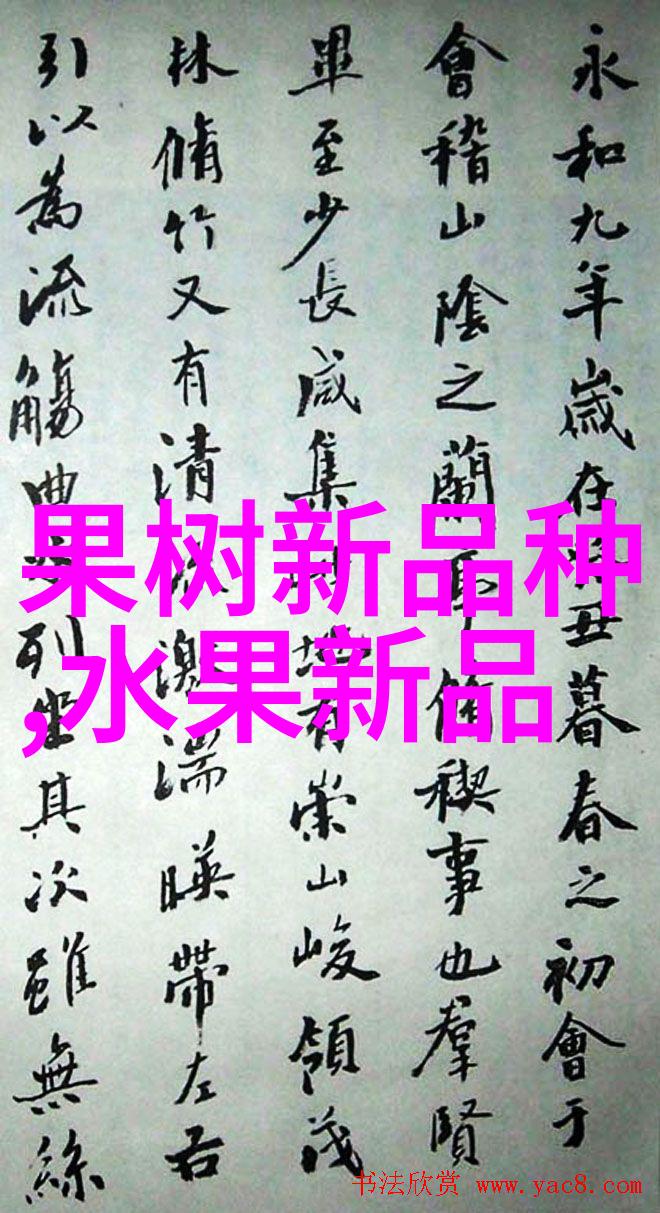 永和九年歲在丑暮春之初會于
會稽山陰之蘭亭脩稧事也羣賢
畢至少長咸集地有崇山峻領茂
林脩竹又有清激湍暎帶左右
引以為流觴曲列坐其次雖無絲
果树新品种
,水果新品
书法欣赏 www.yac8.com